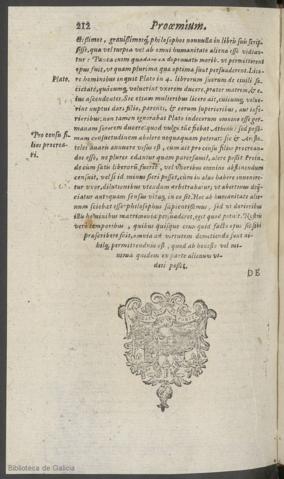 212 Proœmium.
tissimos, gravissimosq́; philosophos nonnulla in libris suis scrip-
sisse, quæ vel turpia vel ab omni humanitate aliena esse videan-
tur: Nam cum quædam ex depravato morib. vt permitterent
opus fuit, vt quam plurima quæ optima sunt persuaderent. Lice-
Plato. re hominibus inquit Plato in 4. librorum suorum de civili so-
cietate, quàcunq; voluerint vxorem ducere, præter matrem, & e-
ius ascendentes. Sic etiam mulieribus licere ait, cuicunq; volue-
rint nuptui dari, filio, parenti, & eorum superioribus, aut infe-
rioribus: non tamen ignorabat Plato indecorum omnino esse ger-
manam sororem ducere: quod vulgò tũc fiebat Athenis: sed pessi-
mam consuetudinem abolere nequaquam poterat: sic & Aristo-
Pro censu fi- teles anum annuere visus est, cum ait pro censu filios procrean-
lios procrea- dos esse, ne plures edantur quàm par
ri. de cum satis liberorũ fuerit, vel vxoribus omnino abstinendum
censuit, vel si id minus fieri posset, cùm in aluo habere invenire-
tur vxor, dilutionibus vtendum arbitrabatur, vt abortiones
ciatur antequam sensus vitaq; in eo sit. Hoc ab humanitate alie-
num sciebat esse philosophus sapientissimus, sed vt durioribus
illis hominibus matrimonia persuaderet, egit quod potuit. Nostris
verò temporibus, quibus quisque eius quid facto opus sit sibi
præscribere scit, omnia ad virtutem dimetienda sunt ni-
hilq; permittendum est, quod ab honesto vel mi-
nima quidem ex parte alienum vi-
deri possit.
DE
Biblioteca de Galicia